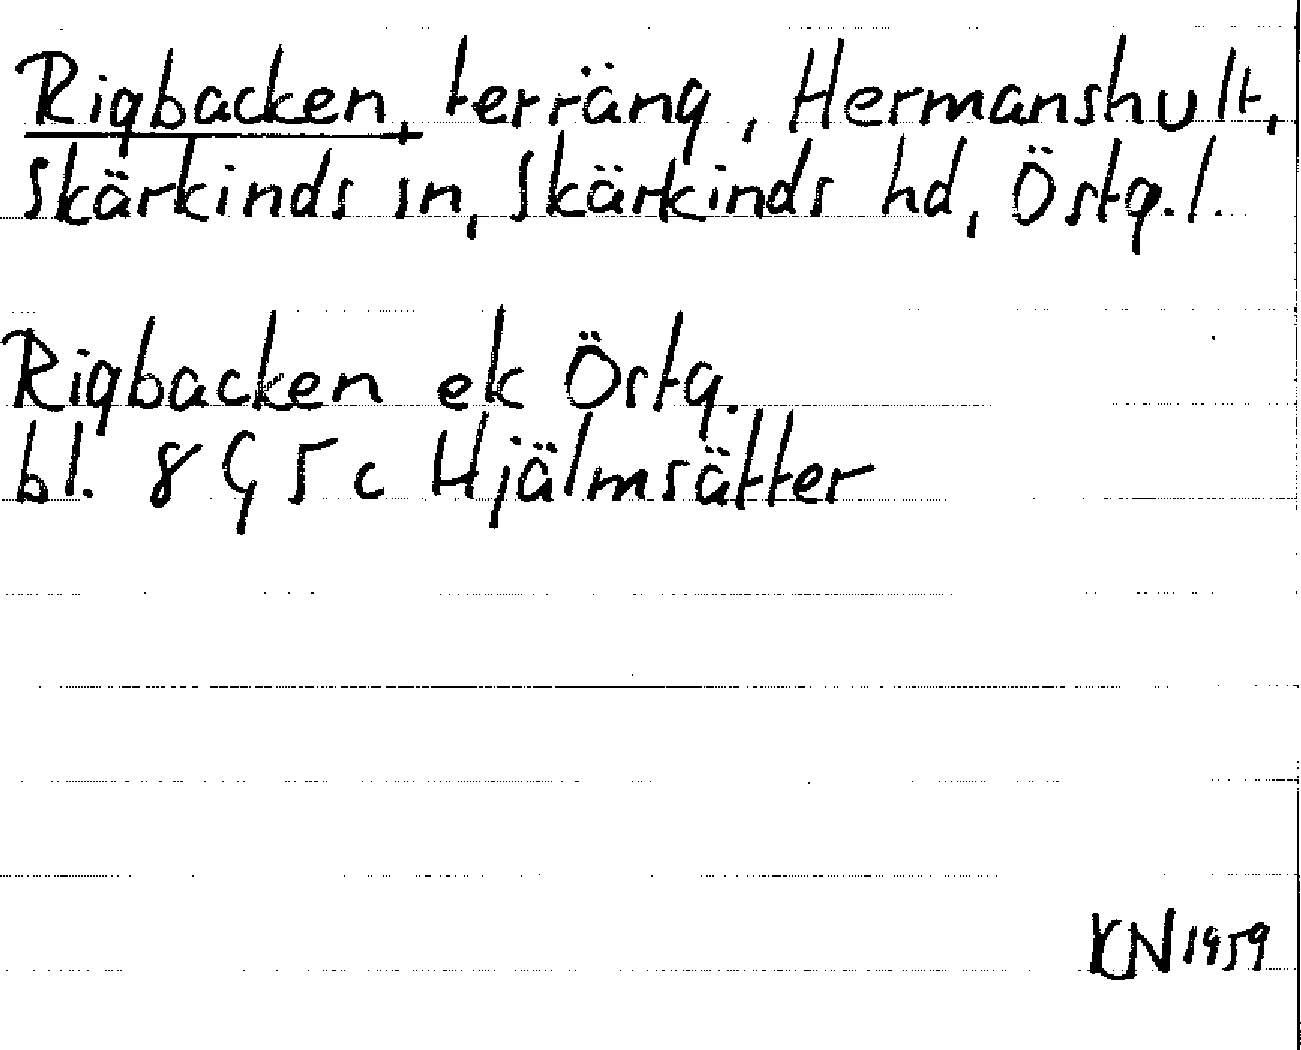 Rigbacken, terräng, Hermanshult,
Skärkinds sn, Skärkinds hd, Östg.l.
Rigbacken ek Östg.
bl. 8 G 5 c Hjälmsätter
KN 1959